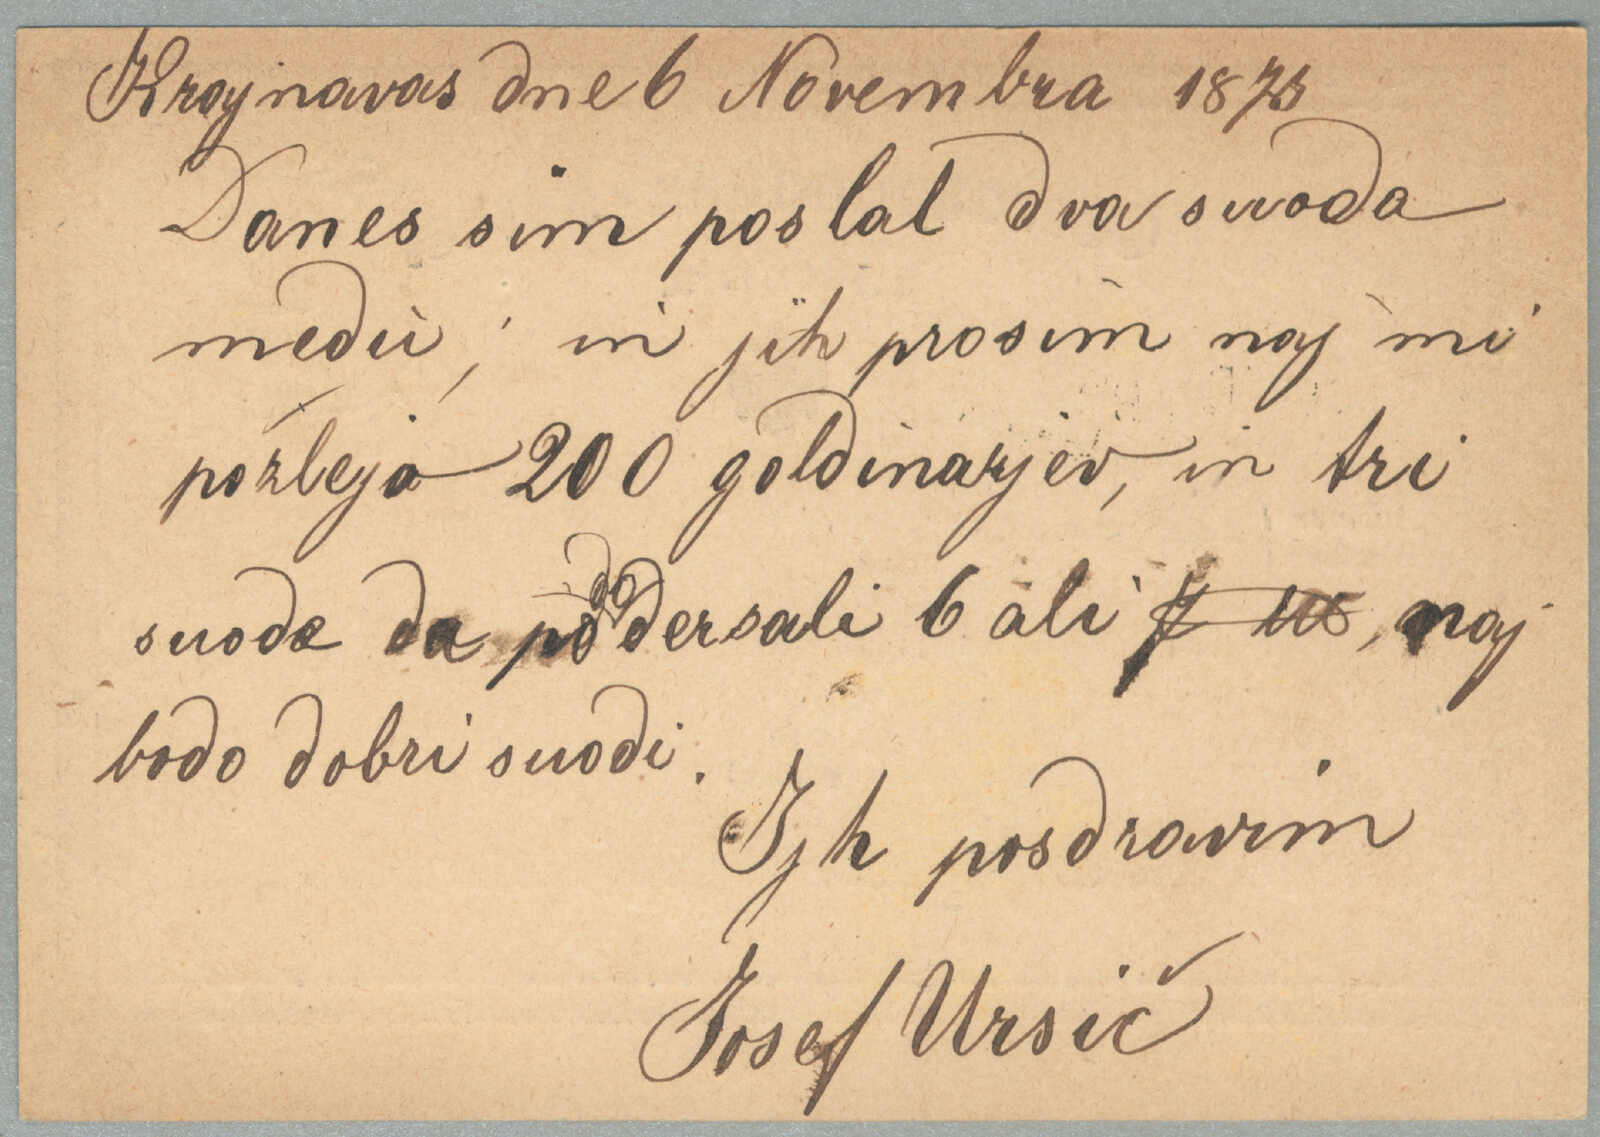 Krajnavas dne 6 Novembra 1873
Danes sim poslal dva suoda
medu, in jih prosim naj mi
pošlejo 200 goldinarjev, in tri
suode da do dersali 6 ali naj
bodo dobri suodi.
Jjh posdravim
Josef Ursič